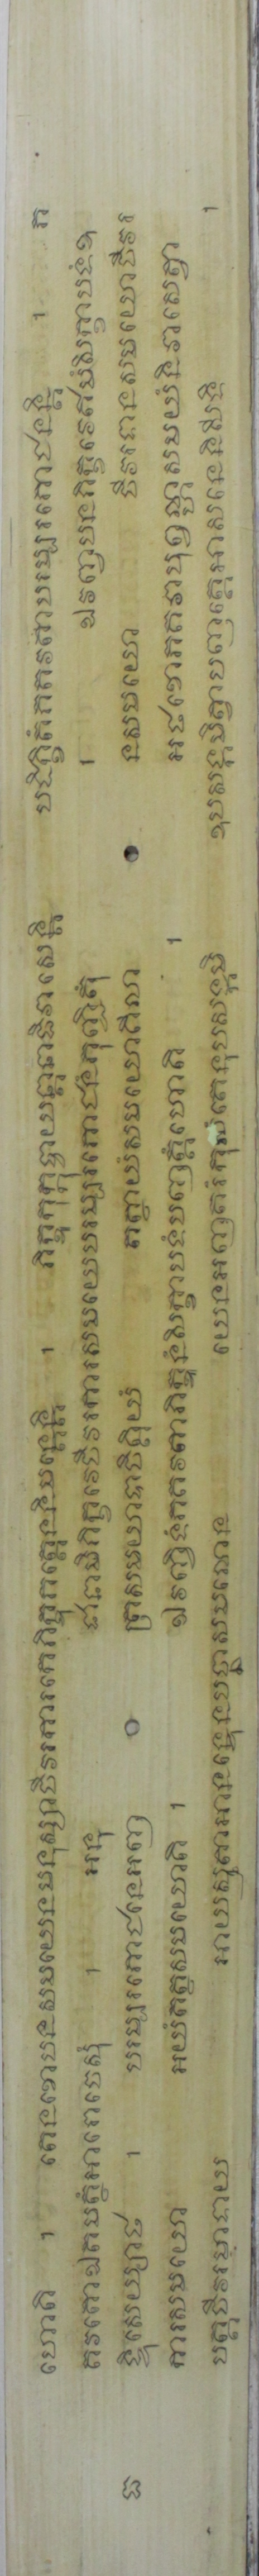 ហោតិ ។ តេនខោបនសមយេនមនុស្សាចីវរការកេភិក្ខូភត្តេននិមន្តេន្តិ ។ ភិក្ខូកុក្កុច្ចាយន្តានាធិវាសេន្តិ បដិក្ខិតំភគវតាបរម្បរភោជនន្តិ ។ ភ
គវតោឯតមត្ថំអារោចេសុំ ។ អនុ ជានាមិភិក្ខវេចីវរការសមយេបរម្បរភោជនំភុញ្ជិតុំ ។ ឯវញ្ចបនភិក្ខវេឥមំសិក្ខាបទំឧ
ធ ទ្ទិសេយ្យាថ ។ បរម្បរភោជនេអញ្ញ ត្រសមយាបាចិត្តិយំ តត្ថាយំសមយោគីលា នសមយោ ចីវរទានសមយោចីវរ
ការសមយោ អយំតត្ថសមយោតិ ។ ឯវញ្ចិទំភគវតាភិក្ខូនំសិក្ខាបទំបញ្ញត្តំហោតិ ។ អថខោភគវាបុព្វណ្ហសមយំនិវាសេត្វា
បត្តចីវរមាទាយ អាយស្មតាអានន្ទេនបច្ឆាសមណេន យេនអញ្ញតរំកុលំតេនុបសង្កមិ ឧបសង្កមិត្វាបញ្ញត្តេអាសនេនិសីទិ ។